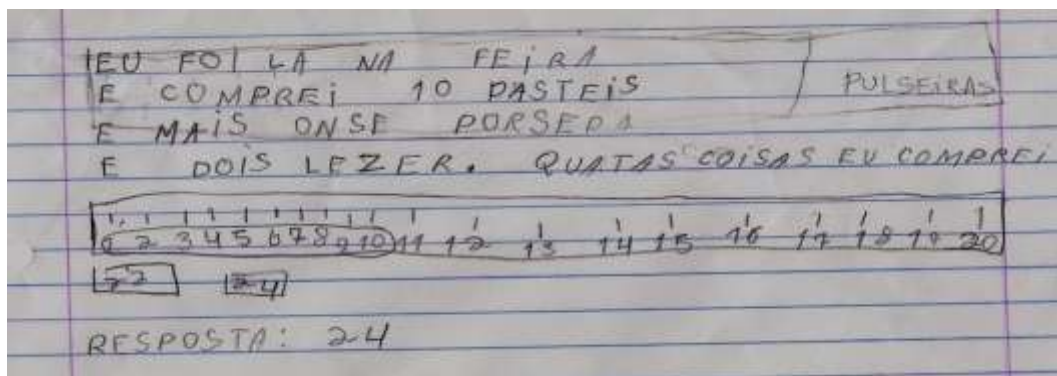 EU FOI LA NA FEiRA
E COMPREi 10 PASTEiS PULSEiRAS
E MAiS ONSE PORSERA
E DOiS LEZER. QUATAS COiSAS EU COMPREi
1 2 3 4 5 6 7 8 9 10 11 12 13 14 15 16 17 18 19 20
22 24
RESPOSTA: 24